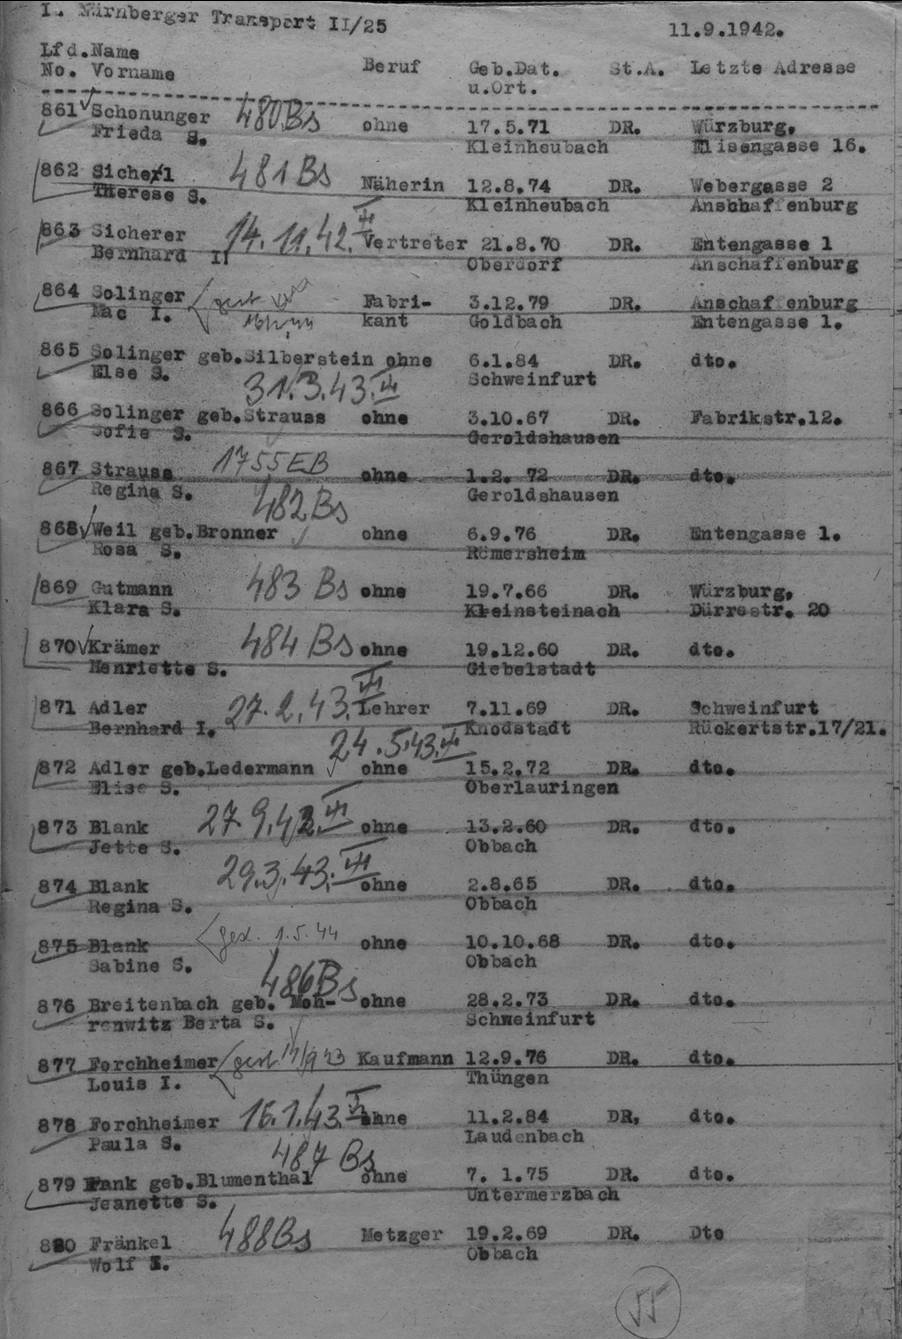 I. Nürnberger Transport II/25 11.9.1942.
Lfd. Name Beruf Geb.Dat. St.A. Letzte Adresse
No. Vorname u.Ort.
861 Schonunger 480Bs ohne 17.5.71 DR. Würzburg,
Frieda S. Kleinheubach Elisengasse 16.
862 Sichel 481Bs Näherin 12.8.74 DR. Webergasse 2
Therese S. Kleinheubach Anschaffenburg
863 Sicherer 14.11.42. Vertreter 21.8.70 DR. Entengasse 1
Bernhard I. Oberdorf Anschaffenburg
864 Solinger gest Fabri- 3.12.79 DR. Anschaffenburg
Mac I. kant Goldbach Entengasse 1.
865 Solinger geb.Silberstein ohne 6.1.84 DR. dto.
Else S. 31.3.43. III Schweinfurt
866 Solinger geb.Strauss ohne 3.10.67 DR. Fabrikstr.12.
Sofie S. Geroldshausen
867 Strauss 1755EB ohne 1.2. 72 DR. dto.
Regina S. 482Bs Geroldshausen
868 Weil geb.Bronner ohne 6.9.76 DR. Entengasse 1.
Rosa S. Römersheim
869 Gutmann 483 Bs ohne 19.7.66 DR. Würzburg,
Klara S. Kleinsteinach Dürrestr. 20
870 Krämer 484 Bs ohne 19.12.60 DR. dto.
Henriette S. Giebelstadt
871 Adler 27.2.43. III Lehrer 7.11.69 DR. Schweinfurt
Bernhard I. Knodstadt Rückertstr.17/21.
24.5.43.
872 Adler geb.Ledermann ohne 15.2.72 DR. dto.
Elise S. Oberlauringen
873 Blank 27 9.42. III ohne 13.2.60 DR. dto.
Jette S. Obbach
874 Blank 29.3.43. III ohne 2.8.65 DR. dto.
Regina S. Obbach
875 Blank gest. 1.5.44 ohne 10.10.68 DR. dto.
Sabine S. Obbach
486Bs
876 Breitenbach geb. Moh- ohne 28.2.73 DR. dto.
renwitz Berta S. Schweinfurt
877 Forchheimer gest 17/9 43 Kaufmann 12.9.76 DR. dto.
Louis I. Thüngen
878 Forchheimer 16.1.43. ohne 11.2.84 DR, dto.
Paula S. Laudenbach
487 Bs
879 Frank geb.Blumenthal ohne 7. 1.75 DR. dto.
Jeanette S. Untermerzbach
880 Fränkel 488Bs Metzger 19.2.69 DR. Dto
Wolf I. Obbach
55